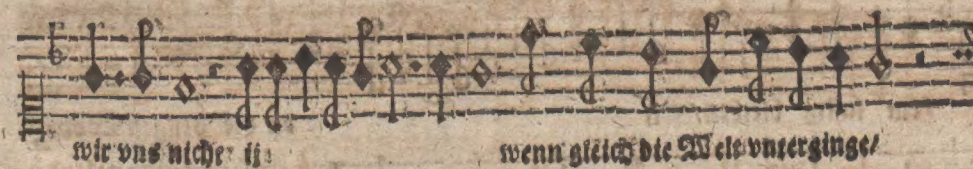 wir vns nicht ij: wenn gleich die Welt vnterginge/